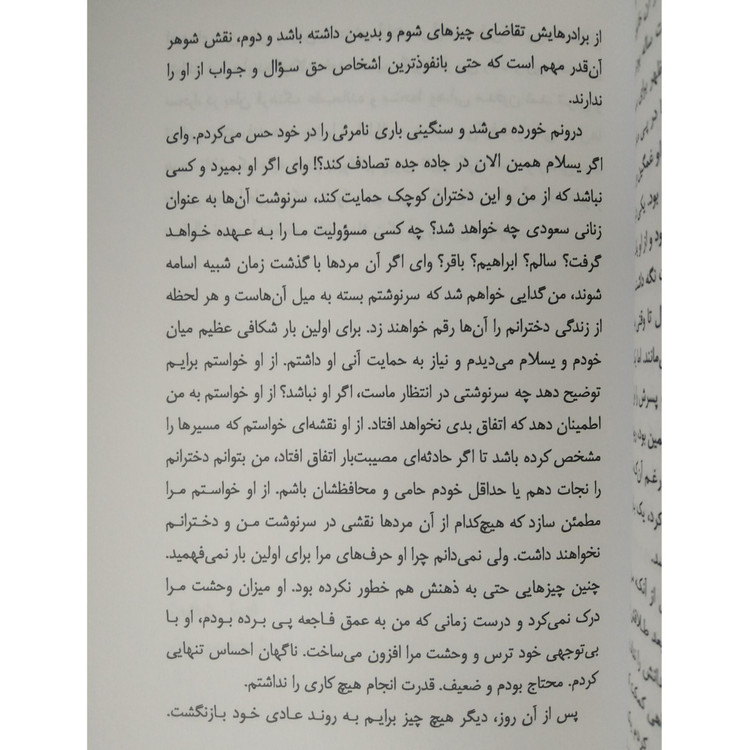 از برادرهایش تقاضای چیزهای شوم و بدیمن داشته باشد و دوم، نقش شوهر
آن‌قدر مهم است که حتی بانفوذترین اشخاص حق سؤال و جواب از او را
ندارند.
درونم خورده می‌شد و سنگینی باری نامرئی را در خود حس می‌کردم. وای
اگر یسلام همین الان در جاده جده تصادف کند؟! وای اگر او بمیرد و کسی
نباشد که از من و این دختران کوچک حمایت کند، سرنوشت آن‌ها به عنوان
زنانی سعودی چه خواهد شد؟ چه کسی مسؤولیت ما را به عهده خواهد
گرفت؟ سالم؟ ابراهیم؟ باقر؟ وای اگر آن مردها با گذشت زمان شبیه اسامه
شوند، من گدایی خواهم شد که سرنوشتم بسته به میل آن‌هاست و هر لحظه
از زندگی دخترانم را آن‌ها رقم خواهند زد. برای اولین بار شکافی عظیم میان
خودم و یسلام می‌دیدم و نیاز به حمایت آنی او داشتم. از او خواستم برایم
توضیح دهد چه سرنوشتی در انتظار ماست، اگر او نباشد؟ از او خواستم به من
اطمینان دهد که اتفاق بدی نخواهد افتاد. از او نقشه‌ای خواستم که مسیرها را
مشخص کرده باشد تا اگر حادثه‌ای مصیبت‌بار اتفاق افتاد، من بتوانم دخترانم
را نجات دهم یا حداقل خودم حامی و محافظشان باشم. از او خواستم مرا
مطمئن سازد که هیچ‌کدام از آن مردها نقشی در سرنوشت من و دخترانم
نخواهند داشت. ولی نمی‌دانم چرا او حرف‌های مرا برای اولین بار نمی‌فهمید.
چنین چیزهایی حتی به ذهنش هم خطور نکرده بود. او میزان وحشت مرا
درک نمی‌کرد و درست زمانی که من به عمق فاجعه پی برده بودم، او با
بی‌توجهی خود ترس و وحشت مرا افزون می‌ساخت. ناگهان احساس تنهایی
کردم. محتاج بودم و ضعیف. قدرت انجام هیچ کاری را نداشتم.
پس از آن روز، دیگر هیچ چیز برایم به روند عادی خود بازنگشت.